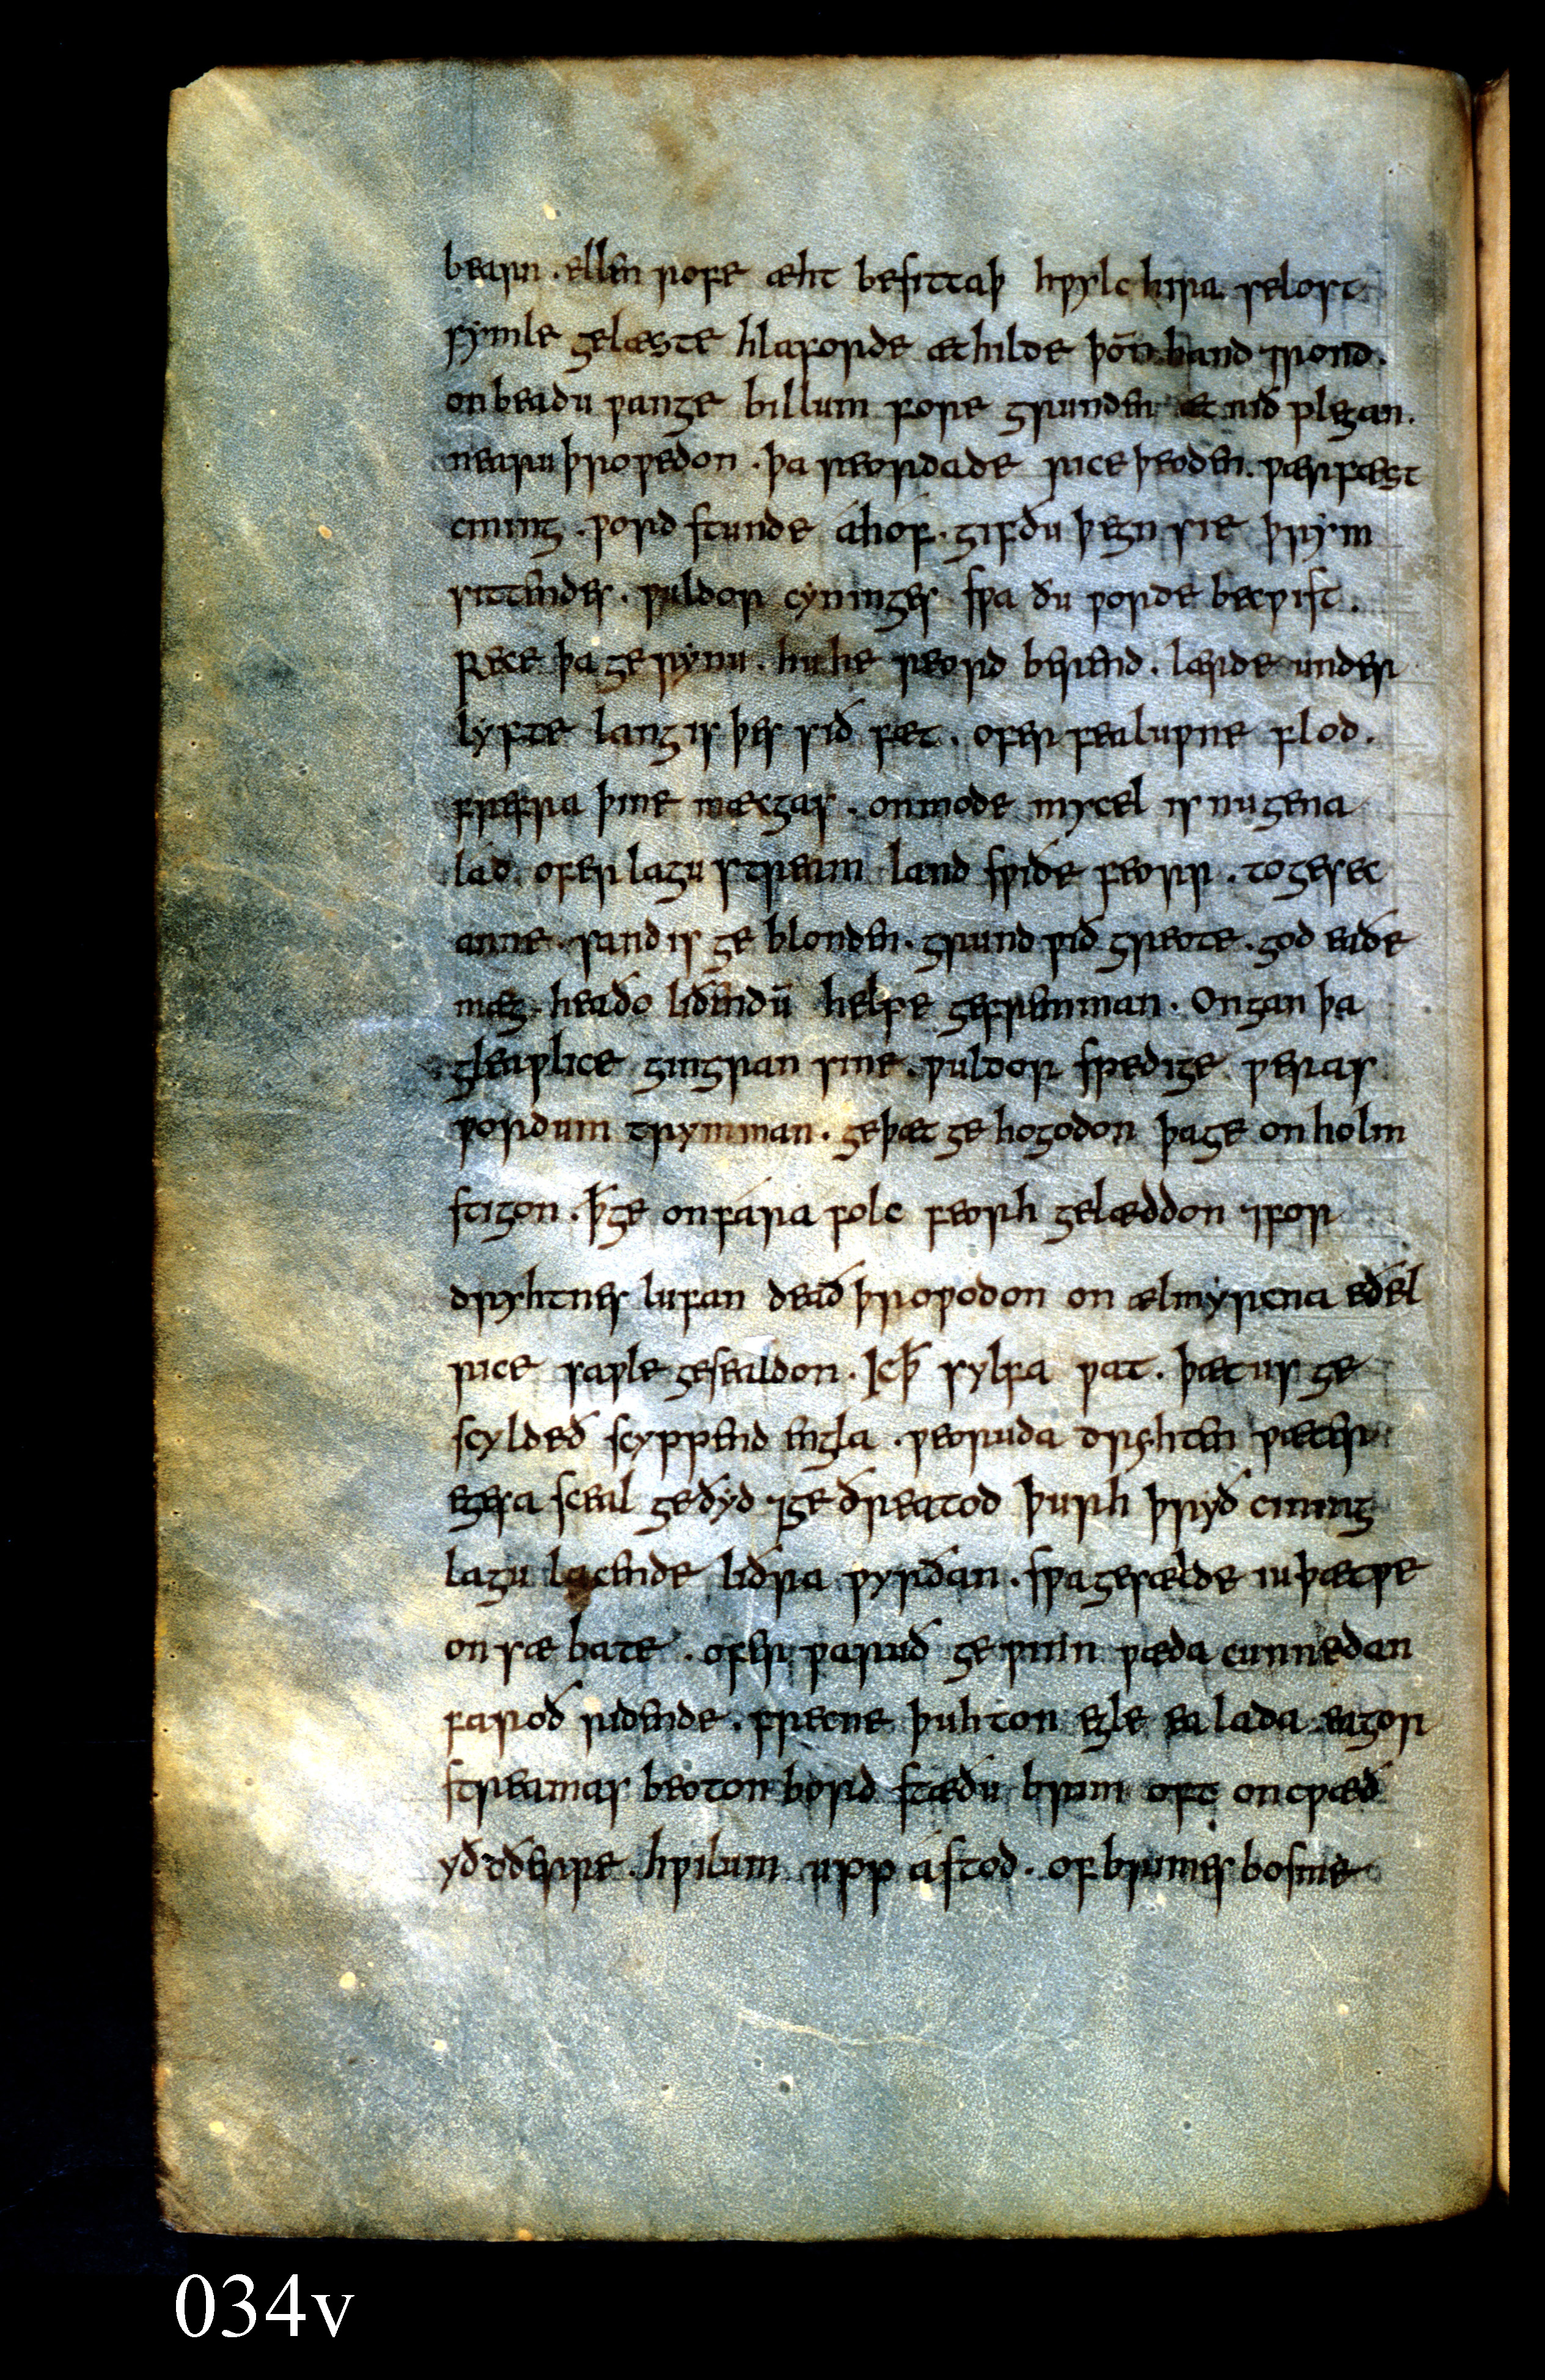 bearn . ellen rofe æht besittaþ hƿylc hira selost
symle gelæste hlaforde æt hilde þoñ hand ⁊rond .
on beadu ƿange billum fore grunden æt nið plegan .
nearu þroƿedon . þa reordade rice þeoden . ƿærfæst
cining . ƿord stunde áhof . gif ðu þegn sie þrym
sittendes . ƿuldor cyninges sƿa ðu ƿorde becƿist .
rece þa gerynu . hu he reord berend . lærde under
lyfte lang is þes sið fæt . ofer fealuƿne flod .
frefra þine mæcgas . on mode mycel is nu gena
lád ofer lagu stream land sƿiðe feorr . to gesec
anne . sand is ge blonden . grund ƿið greote . god eaðe
mæg . heaðo liðendū helpe gefremman . Ongan þa
gleaƿlice gingran sine . ƿuldor spedige ƿeras
ƿordum trymman . ge þæt ge hogodon þa ge on holm
stigon . ꝥ ge on fára folc feorh gelæddon ⁊for
dryhtnes lufan deað þroƿodon on ælmyrcna eðel
rice saƿle gesealdon . Ic ꝥ sylfa ƿat . þæt us ge
scyldeð scyppend engla . ƿeoruda dryhten ƿæter
egesa sceal geðyd ⁊ge ðreatod þurh þryð cining
lagu lacende liðra ƿyrðan . sƿa gesælde iu þæt ƿe
on sæ bate . ofer ƿaruð ge ƿinn ƿæda cunnedan
faroð ridende . frecne þuhton egle ea lada eagor
streamas beoton bord stæðu brim oft oncƿæð
yð oðerre . hƿilum upp ástod . of brimes bosme
034v